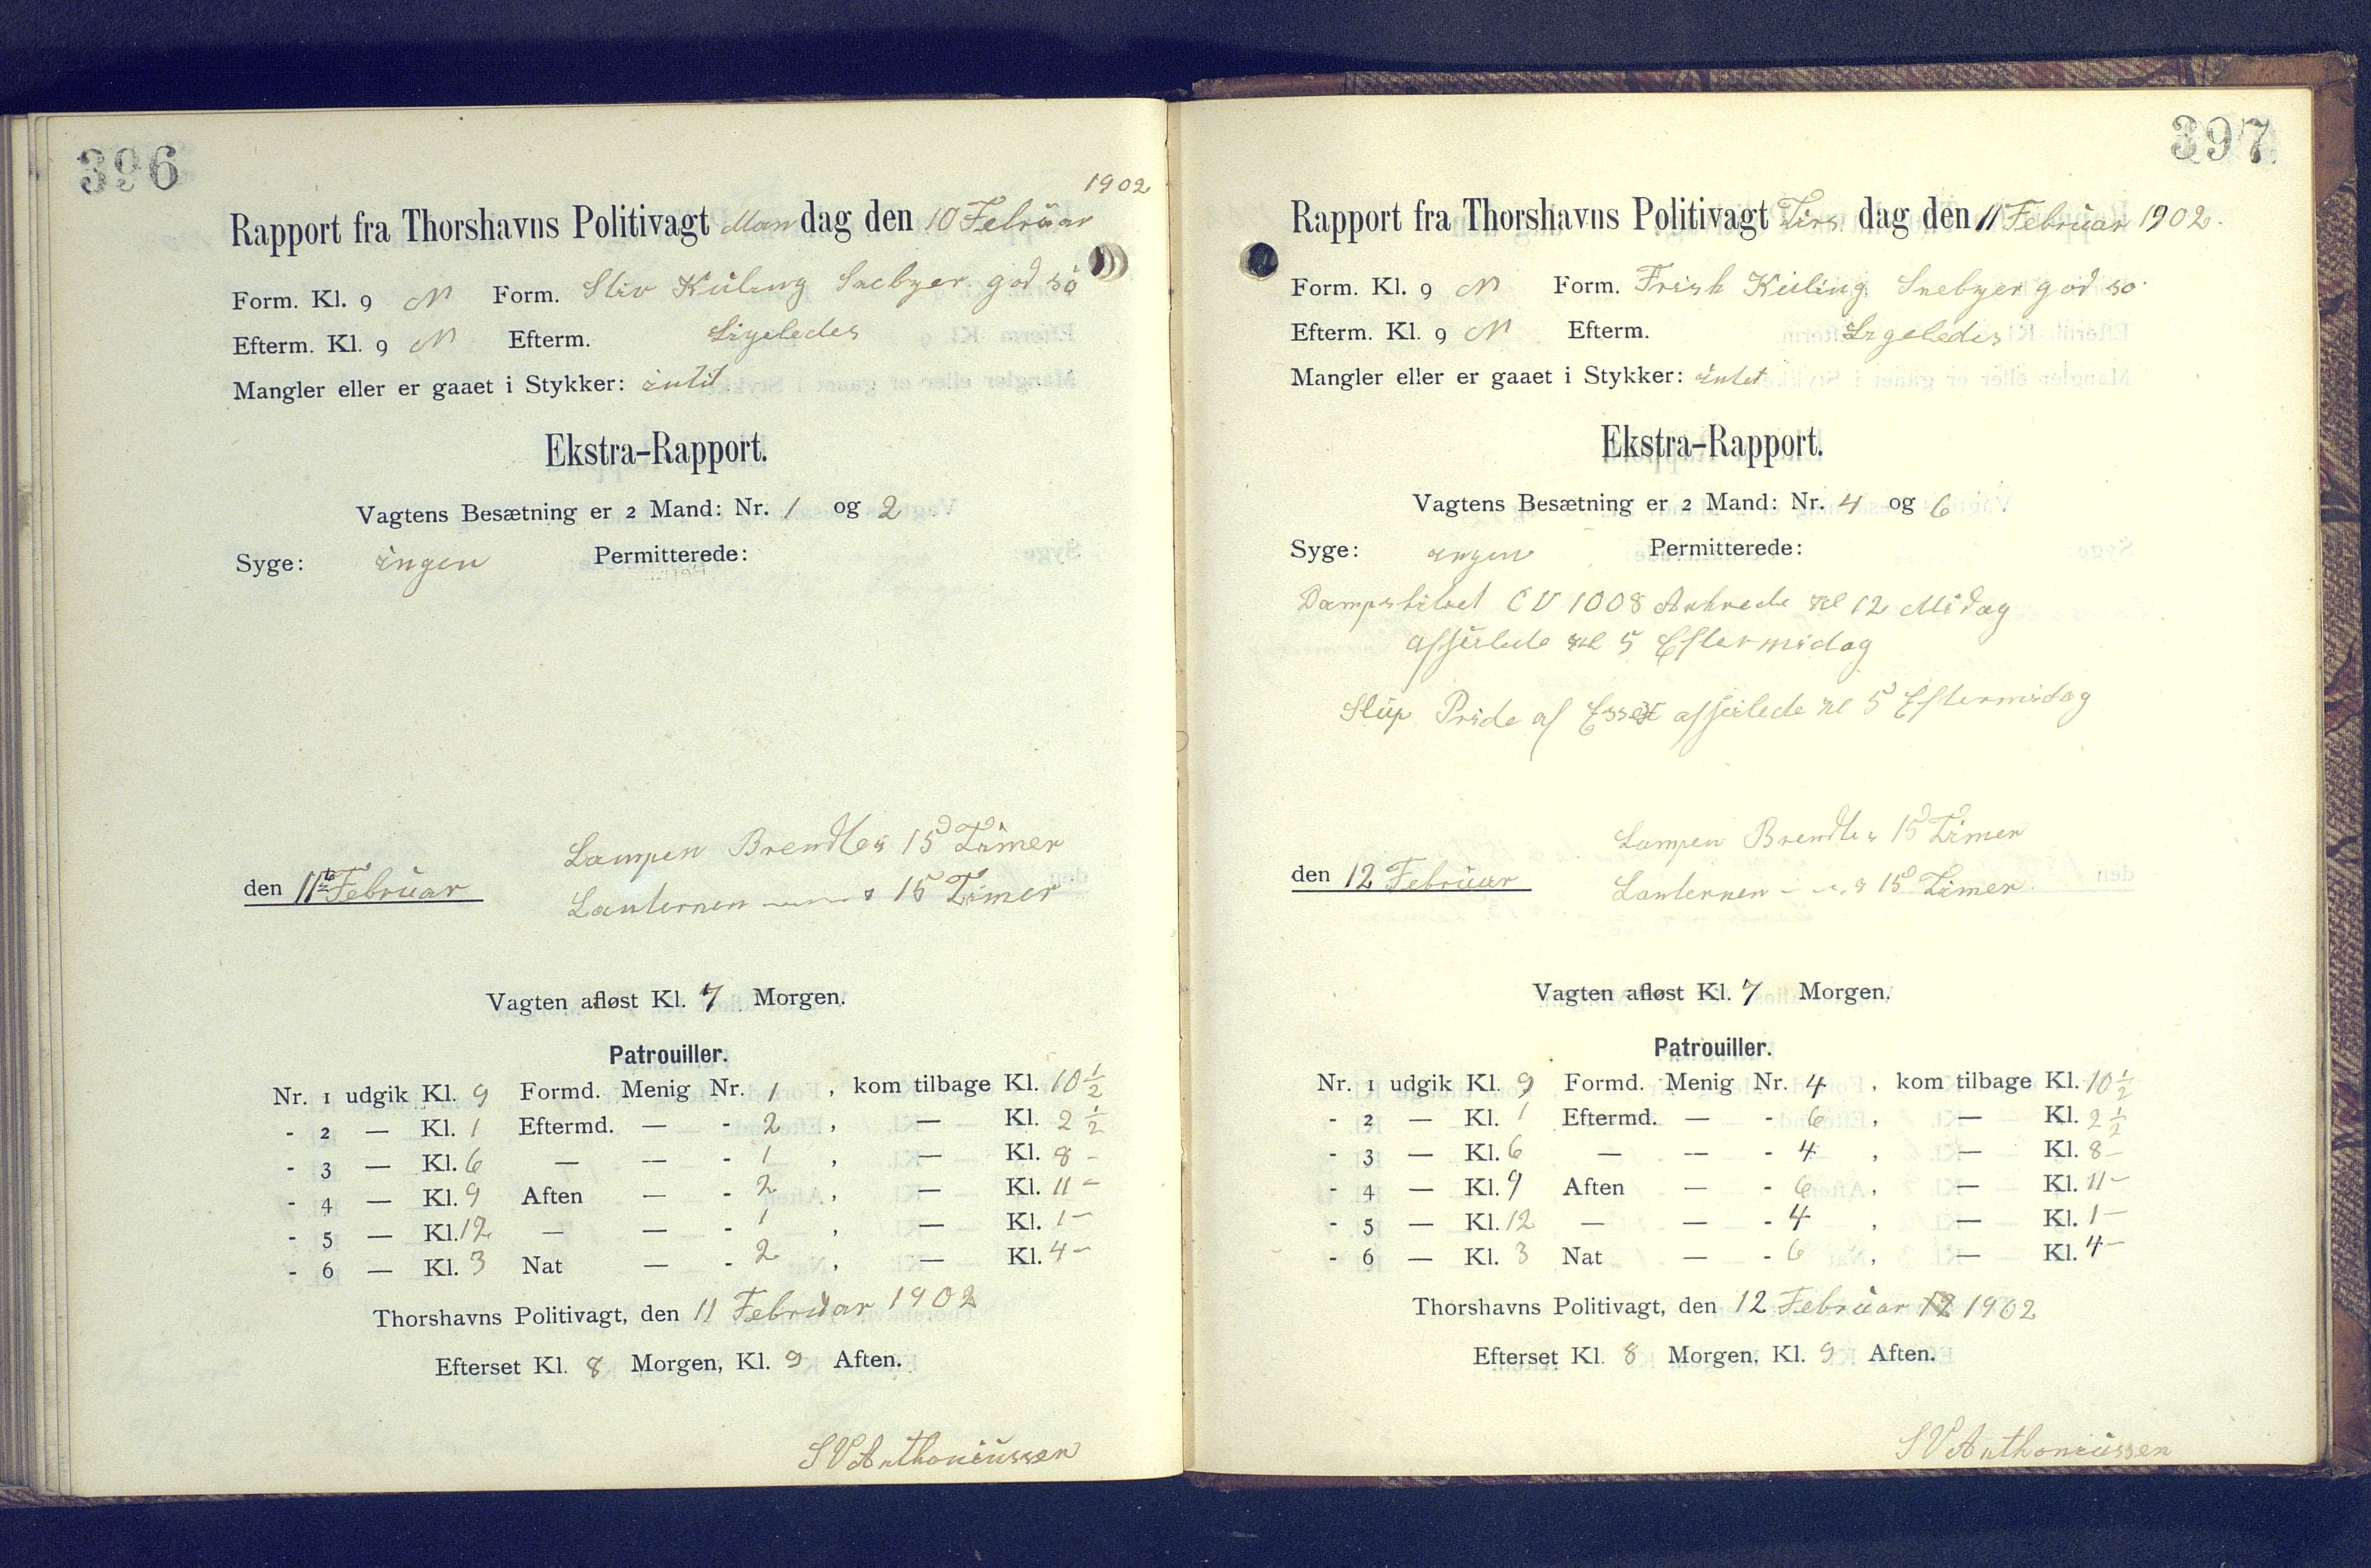 396
1902
Rapport fra Thorshavns Politivagt Mandag den 10 Februar
Form. Kl. 9 N Form. Stiv Kuling Snebyer god sö
Efterm. Kl. 9 N Efterm. Ligeledes
Mangler eller er gaaet i Stykker: intet
Ekstra-Rapport.
Vagtens Besætning er 2 Mand: Nr. 1 og 2
Syge: ingen Permitterede:
Lampen Brendte i 15 Timer
den 11te Februar
Lanternen — — i 15 Timer
Vagten afløst Kl. 7 Morgen.
Patrouiller.
Nr. 1 udgik Kl. 9 Formd. Menig Nr. 1 , kom tilbage Kl. 10 ½
- 2 — Kl. 1 Eftermd. — - 2 , — Kl. 2 ½
- 3 — Kl. 6 — — - 1 , — Kl. 8 -
- 4 — Kl. 9 Aften — - 2 , — Kl. 11 -
- 5 — Kl. 12 — — - 1 , — Kl. 1 -
- 6 — Kl. 3 Nat — - 2 , — Kl. 4 -
Thorshavns Politivagt, den 11 Februar 1902
Efterset Kl. 8 Morgen, Kl. 9 Aften.
SVAnthoniussen
397
Rapport fra Thorshavns Politivagt Tirsdag den 11 Februar 1902.
Form. Kl. 9 N Form. Frisk Kuling Snebyer god so
Efterm. Kl. 9 N Efterm. Ligeledes
Mangler eller er gaaet i Stykker: intet
Ekstra-Rapport.
Vagtens Besætning er 2 Mand: Nr. 4 og 6
Syge: ingen Permitterede:
1008 Ankrede Kl 12 Midag
afseilede Kl 5 Eftermidag
Slup Pride of Essex afseilede Kl 5 Eftermidag
Lampen Brendte i 15 Timer
den 12 Februar
Lanternen — — i 15 Timer
Vagten afløst Kl. 7 Morgen.
Patrouiller.
Nr. 1 udgik Kl. 9 Formd. Menig Nr. 4 , kom tilbage Kl. 10 ½
- 2 — Kl. 1 Eftermd. — - 6 , — Kl. 2 ½
- 3 — Kl. 6 — — - 4 , — Kl. 8 -
- 4 — Kl. 9 Aften — - 6 , — Kl. 11 -
- 5 — Kl. 12 — — - 4 , — Kl. 1 -
- 6 — Kl. 3 Nat — - 6 , — Kl. 4 -
Thorshavns Politivagt, den 12 Februar 1902
Efterset Kl. 8 Morgen, Kl. 9 Aften.
SVAnthoniussen